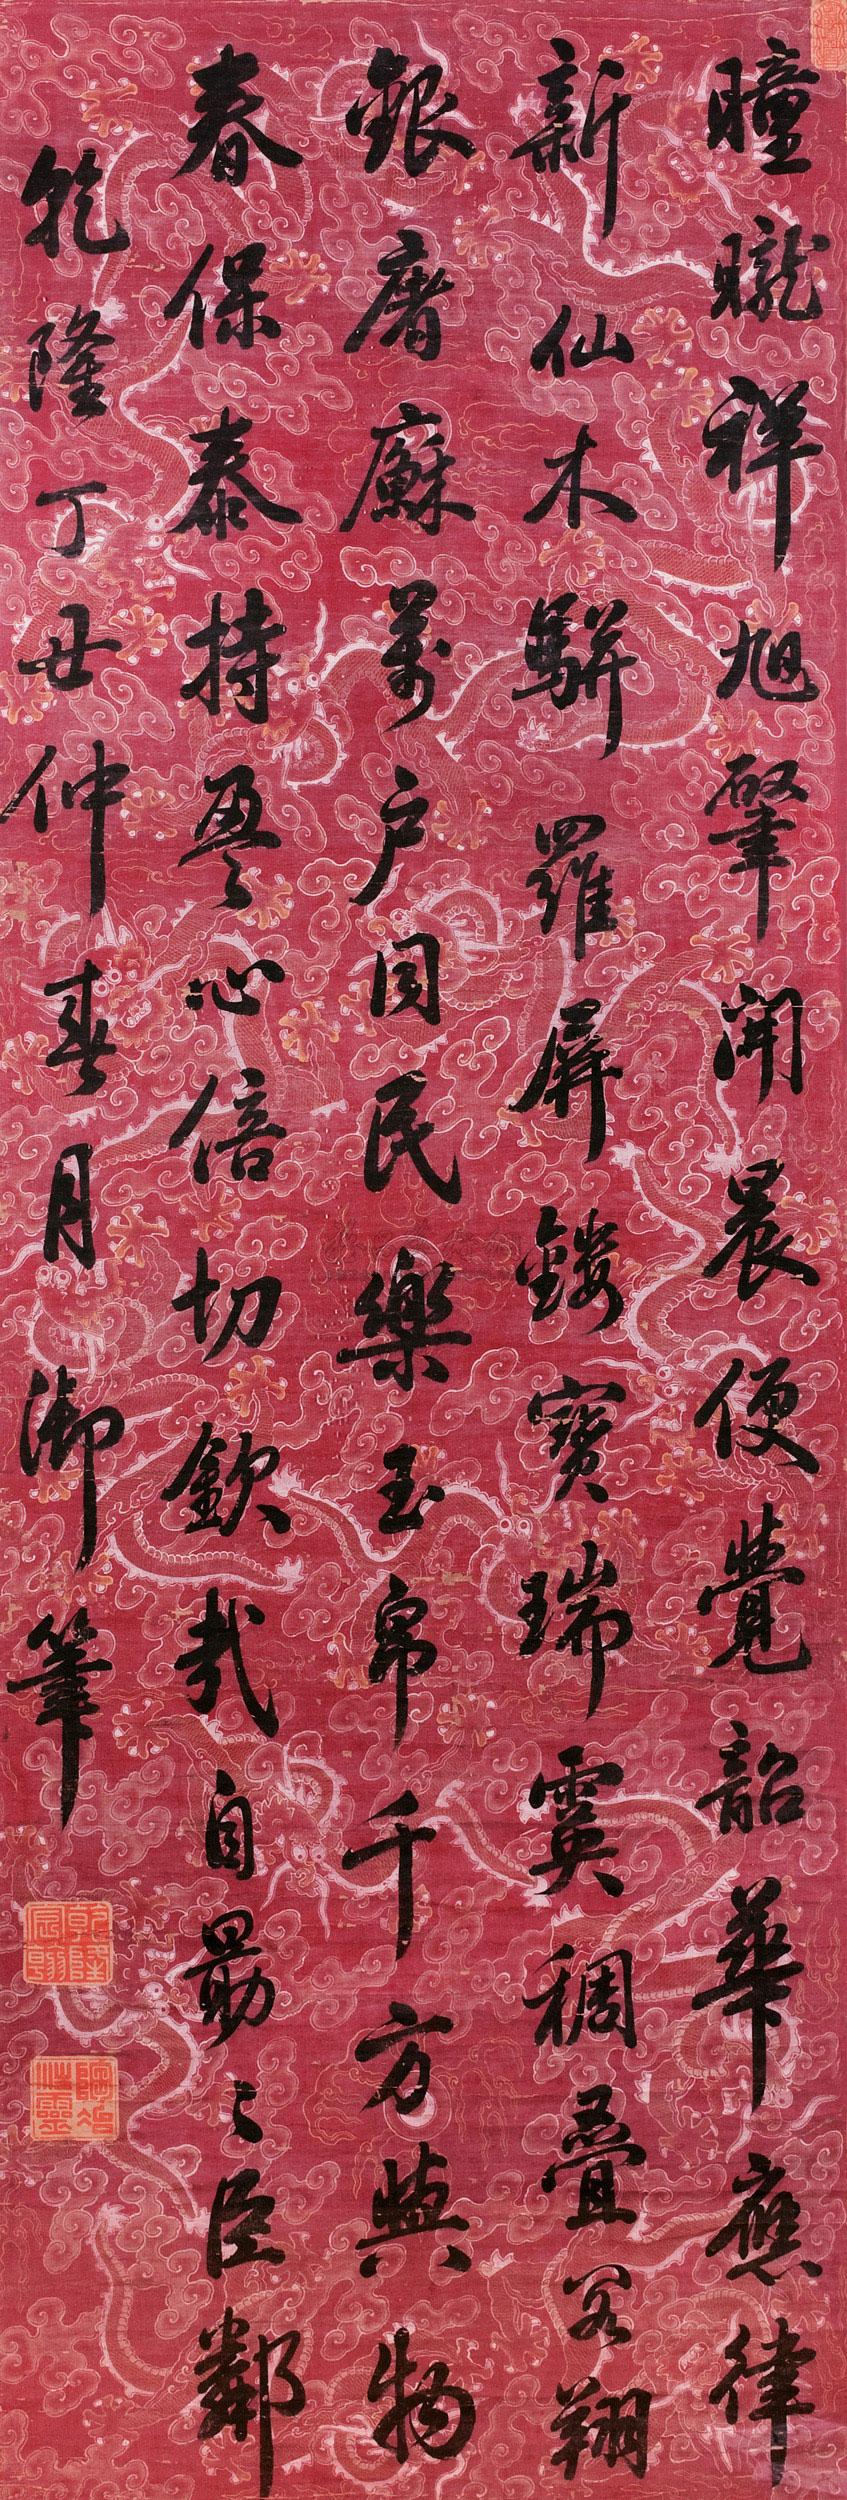 曈曨祥旭肇開晨便覺韶華應律
新仙木駢羅屏鏤寶瑞霙稠疊畟翔
銀屠廯萬户同民樂玉帛千方與物
春保泰持盈心倍切欽哉自勗勗臣鄰
乾隆丁丑仲春月御筆
乾隆宸翰
陶冶性靈